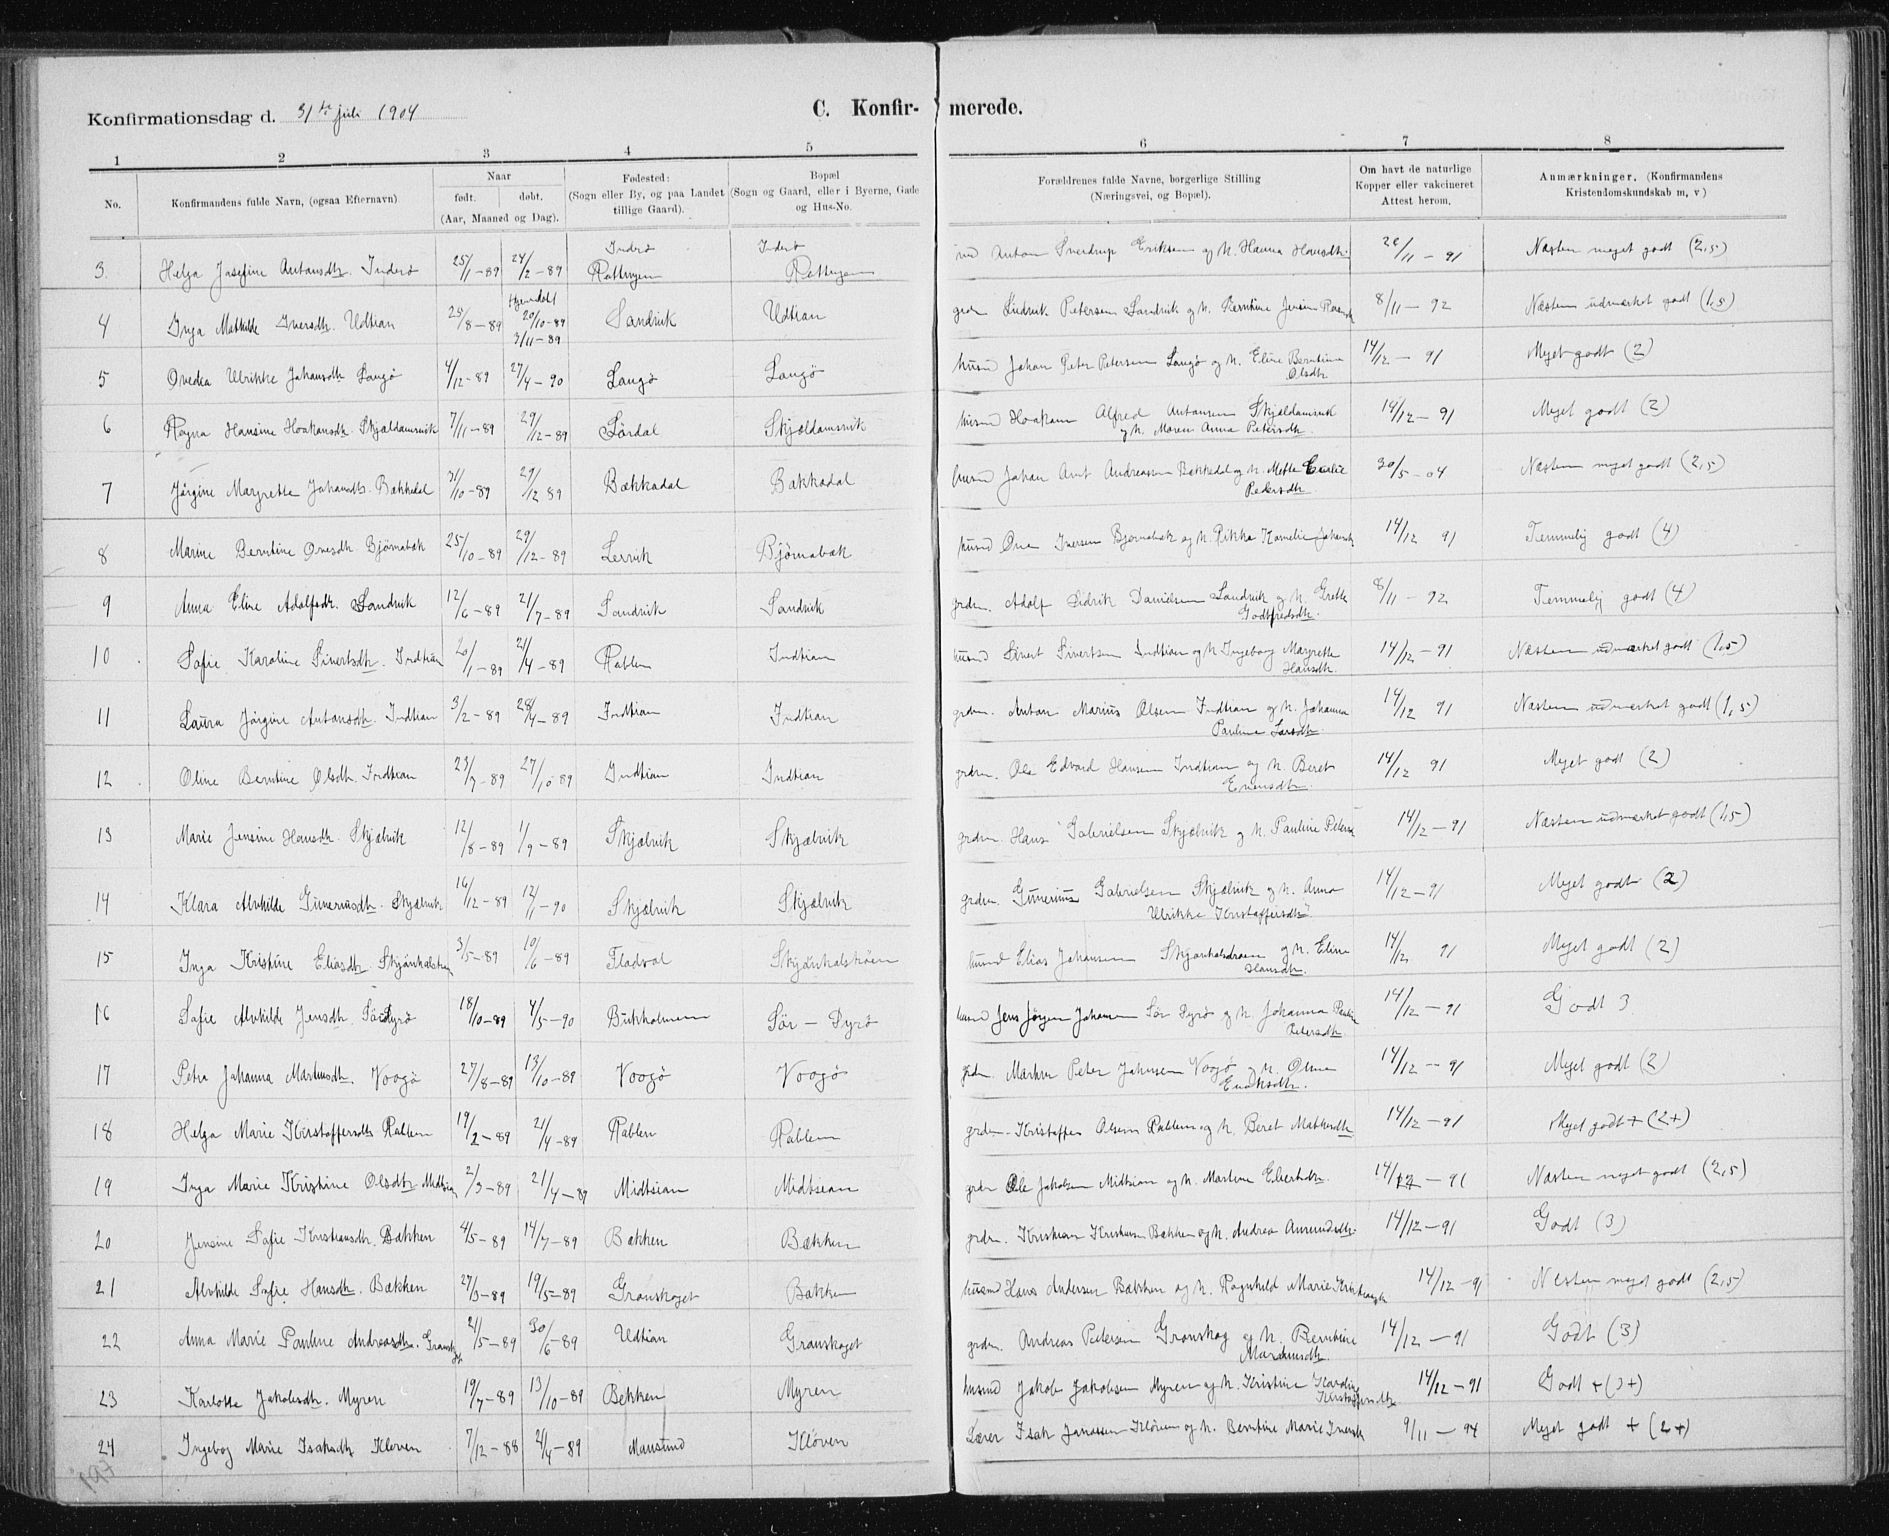 Konfirmationsdag d. 31te juli 1904
C. Konfir- merede.
1 2 3 4 5 6 7 8
No.
Konfirmandens fulde Navn, (ogsaa Efternavn)
Naar
født. døbt.
(Aar, Maaned og Dag).
Fødested:
(Sogn eller By, og paa Landet
tillige Gaard).
Bopæl
(Sogn og Gaard, eller i Byerne, Gade
og Hus-No.
Forældrenes fulde Navne, borgerlige Stilling
(Næringsvei, og Bopæl).
Om havt de naturlige
Kopper eller vakcineret
Attest herom.
Anmærkninger. (Konfirmandens
Kristendomskundskab m, v)
Inderø Inderø
3. Helga Josefine Antonsdtr. Inderø 25/1-89 24/2-89 Anton Sverdrup Eriksen og h. Hanna Hansdtr. 26/11-91 Næsten meget godt (2,5)
Hjemdøbt
4 Inga Mathilde Iversdtr. Udtian 25/8-89 20/10-89 Sandvik Udtian Petersen Sandvik og h. Berntine Jensin 8/11-92 Næsten udmærket godt (1,5)
3/11-89
5 Ovedia Ulrikke Johansdtr Langø 4/12-89 27/4-90 Langø Langø husmd Johan Peter Petersen Langø og h. Eline Berntina 14/12-91 Meget godt (2)
Olsdtr
6 Ragna Hansine Haakonsdtr. Skjældamsvik 7/11-89 29/12-89 Sørdal Skjældamsvik husmd Haakon Alfred Antonsen Skjældamsvik 14/12-91 Meget godt (2)
og h. Maren Anna Petersdtr.
7 Jørgine Margrette Johansdtr. Bækkedal 31/10-89 29/12 89 Bækkadal Bækkadal husmd Johan Arnt Andreassen Bækkedal og h. Mette 30/5-04 Næsten meget godt (2,5)
Pedersdtr.
8 Marine Berntine Ovesdtr Bjørnabæk 25/10-89 29/12-89 Lervik Bjørnabæk husmd Ove Iversen Bjørnabæk og h. Rikka Kornelie Johansdtr 14/12 91 Temmelig godt (4)
9 Anna Eline Adolfsdtr. Sandvik 12/6-89 21/7-89 Sandvik Sandvik grdm. Adolf Didrik Davidsen Sandvik og h. Grette 8/11-92 Temmelig godt (4)
Godtfredsdtr.
10 Sofie Karoline Sivertsdtr. Indtian 20/1-89 21/4-89 Rablen Indtian husmd Sivert Sivertsen Indtian og h Ingeborg Margrette 14/12-91 Næsten udmærket godt (1,5)
Hansdtr.
11 Laura Jørgine Antonsdtr. Indtian 3/2-89 28/4-89 Indtian Indtian grdm. Anton Marius Olsen Indtian og h. Johanna 14/12 91 Næsten udmærket godt (1,5)
Pauline Larsdtr
12 Oline Berntine Olsdtr. Indtian 23/7-89 27/10 89 Indtian Indtian grdm. Ole Edvard Hansen Indtian og h. Beret 14/12 91 Meget godt (2)
13 Marie Jensine Hansdtr. Skjælvik 12/8-89 1/9-89 Skjælvik Skjælvik grdm. Hans Gabrielsen Skjælvik og h. Pauline 14/12-91 Næsten udmærket godt (1,5)
14 Klara Alvhilde Guneriusdtr. Skjælvik 16/12-89 12/1-90 Skjælvik Skjælvik grdm. Gunerius Gabrielsen Skjælvik og h. Anna 14/12-91 Meget godt (2)
Ulrikke Kristoffersdtr
15 Inga Kristine Eliasdtr 3/5-89 10/6-89 Fladval husmd Elias Johansen og h. Eline 14/12 91 Meget godt (2)
Hansdtr.
16 Sofie Alvhilde Jensdtr. 18/10-89 4/5-90 Bukholmen Sør-Dyrø husmd Jens Jørgen Johansen Sør Dyrø og h. Johanna Pauline 14/12-91 Godt 3
Petersdtr
17 Petra Johanna Martinsdtr. Vaagø 27/8-89 13/10-89 Vaagø Vaagø grdm. Peter Johnsen Vaagø og h. 14/12-91 Meget godt (2)
18 Helga Marie Kristoffersdtr Rablen 19/2-89 21/4-89 Rablen Rablen grdm. Kristoffer Olsen Rablen og h. Beret 14/12-91 Meget godt + (2+)
19 Inga Marie Kristine Olsdtr Midtsian 2/3-89 21/4-89 Midtsian Midtsian grdm Ole Jakobsen Midtsian og h. Martine 14/12-91 Næsten meget godt (2,5)
20 Jensine Sofie Kristiansdtr. Bækken 4/5-89 14/7-89 Bækken Bækken grdm. Kristian Kristiansen Bækken og h. Andrea 14/12-91 Godt (3)
21 Alvhilde Sofie Hansdtr. Bækken 27/3-89 19/5-89 Granskaget Bækken husmd Hans Andersen Bækken og h. Ragnhild Marie 14/12-91 Næsten meget godt (2,5)
22 Anna Marie Pauline Andreasdtr. Granskaget 21/5-89 30/6-89 Udtian Granskaget grdm. Andreas Petersen Granskag og h. Berntine 14/12-91 Godt (3)
Martinusdtr.
23 Karlotte Jakobsdtr. Myren 19/7-89 13/10-89 Bekken Myren husmd Jakob Jakobsen Myren og h. Kristine 14/12-91 Godt + (3+)
Kristoffersdtr
24 Ingebog Marie Isaksdtr Kløven 7/12-88 2/4-89 Mausund Kløven Lærer Isak Kløven og h. Berntine Marie 9/11-94 Meget godt + (2+)